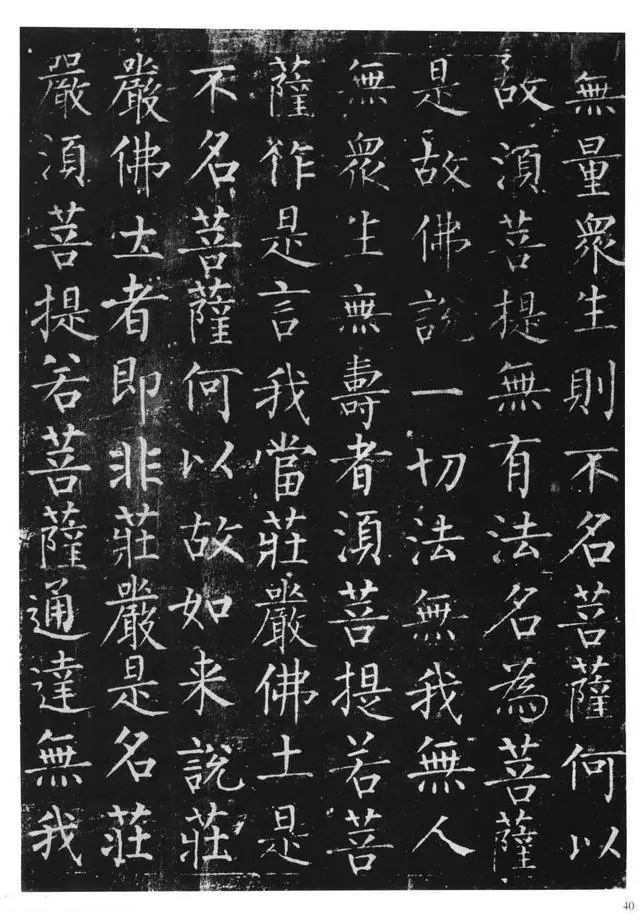 無量眾生則不名菩薩何以
故須菩提無有法名為菩薩
是故佛說一切法無我無人
無眾生無壽者須菩提若菩
薩作是言我當莊嚴佛土是
不名菩薩何以故如来說莊
嚴佛土者即非莊嚴是名莊
嚴須菩提若菩薩通達無我
40